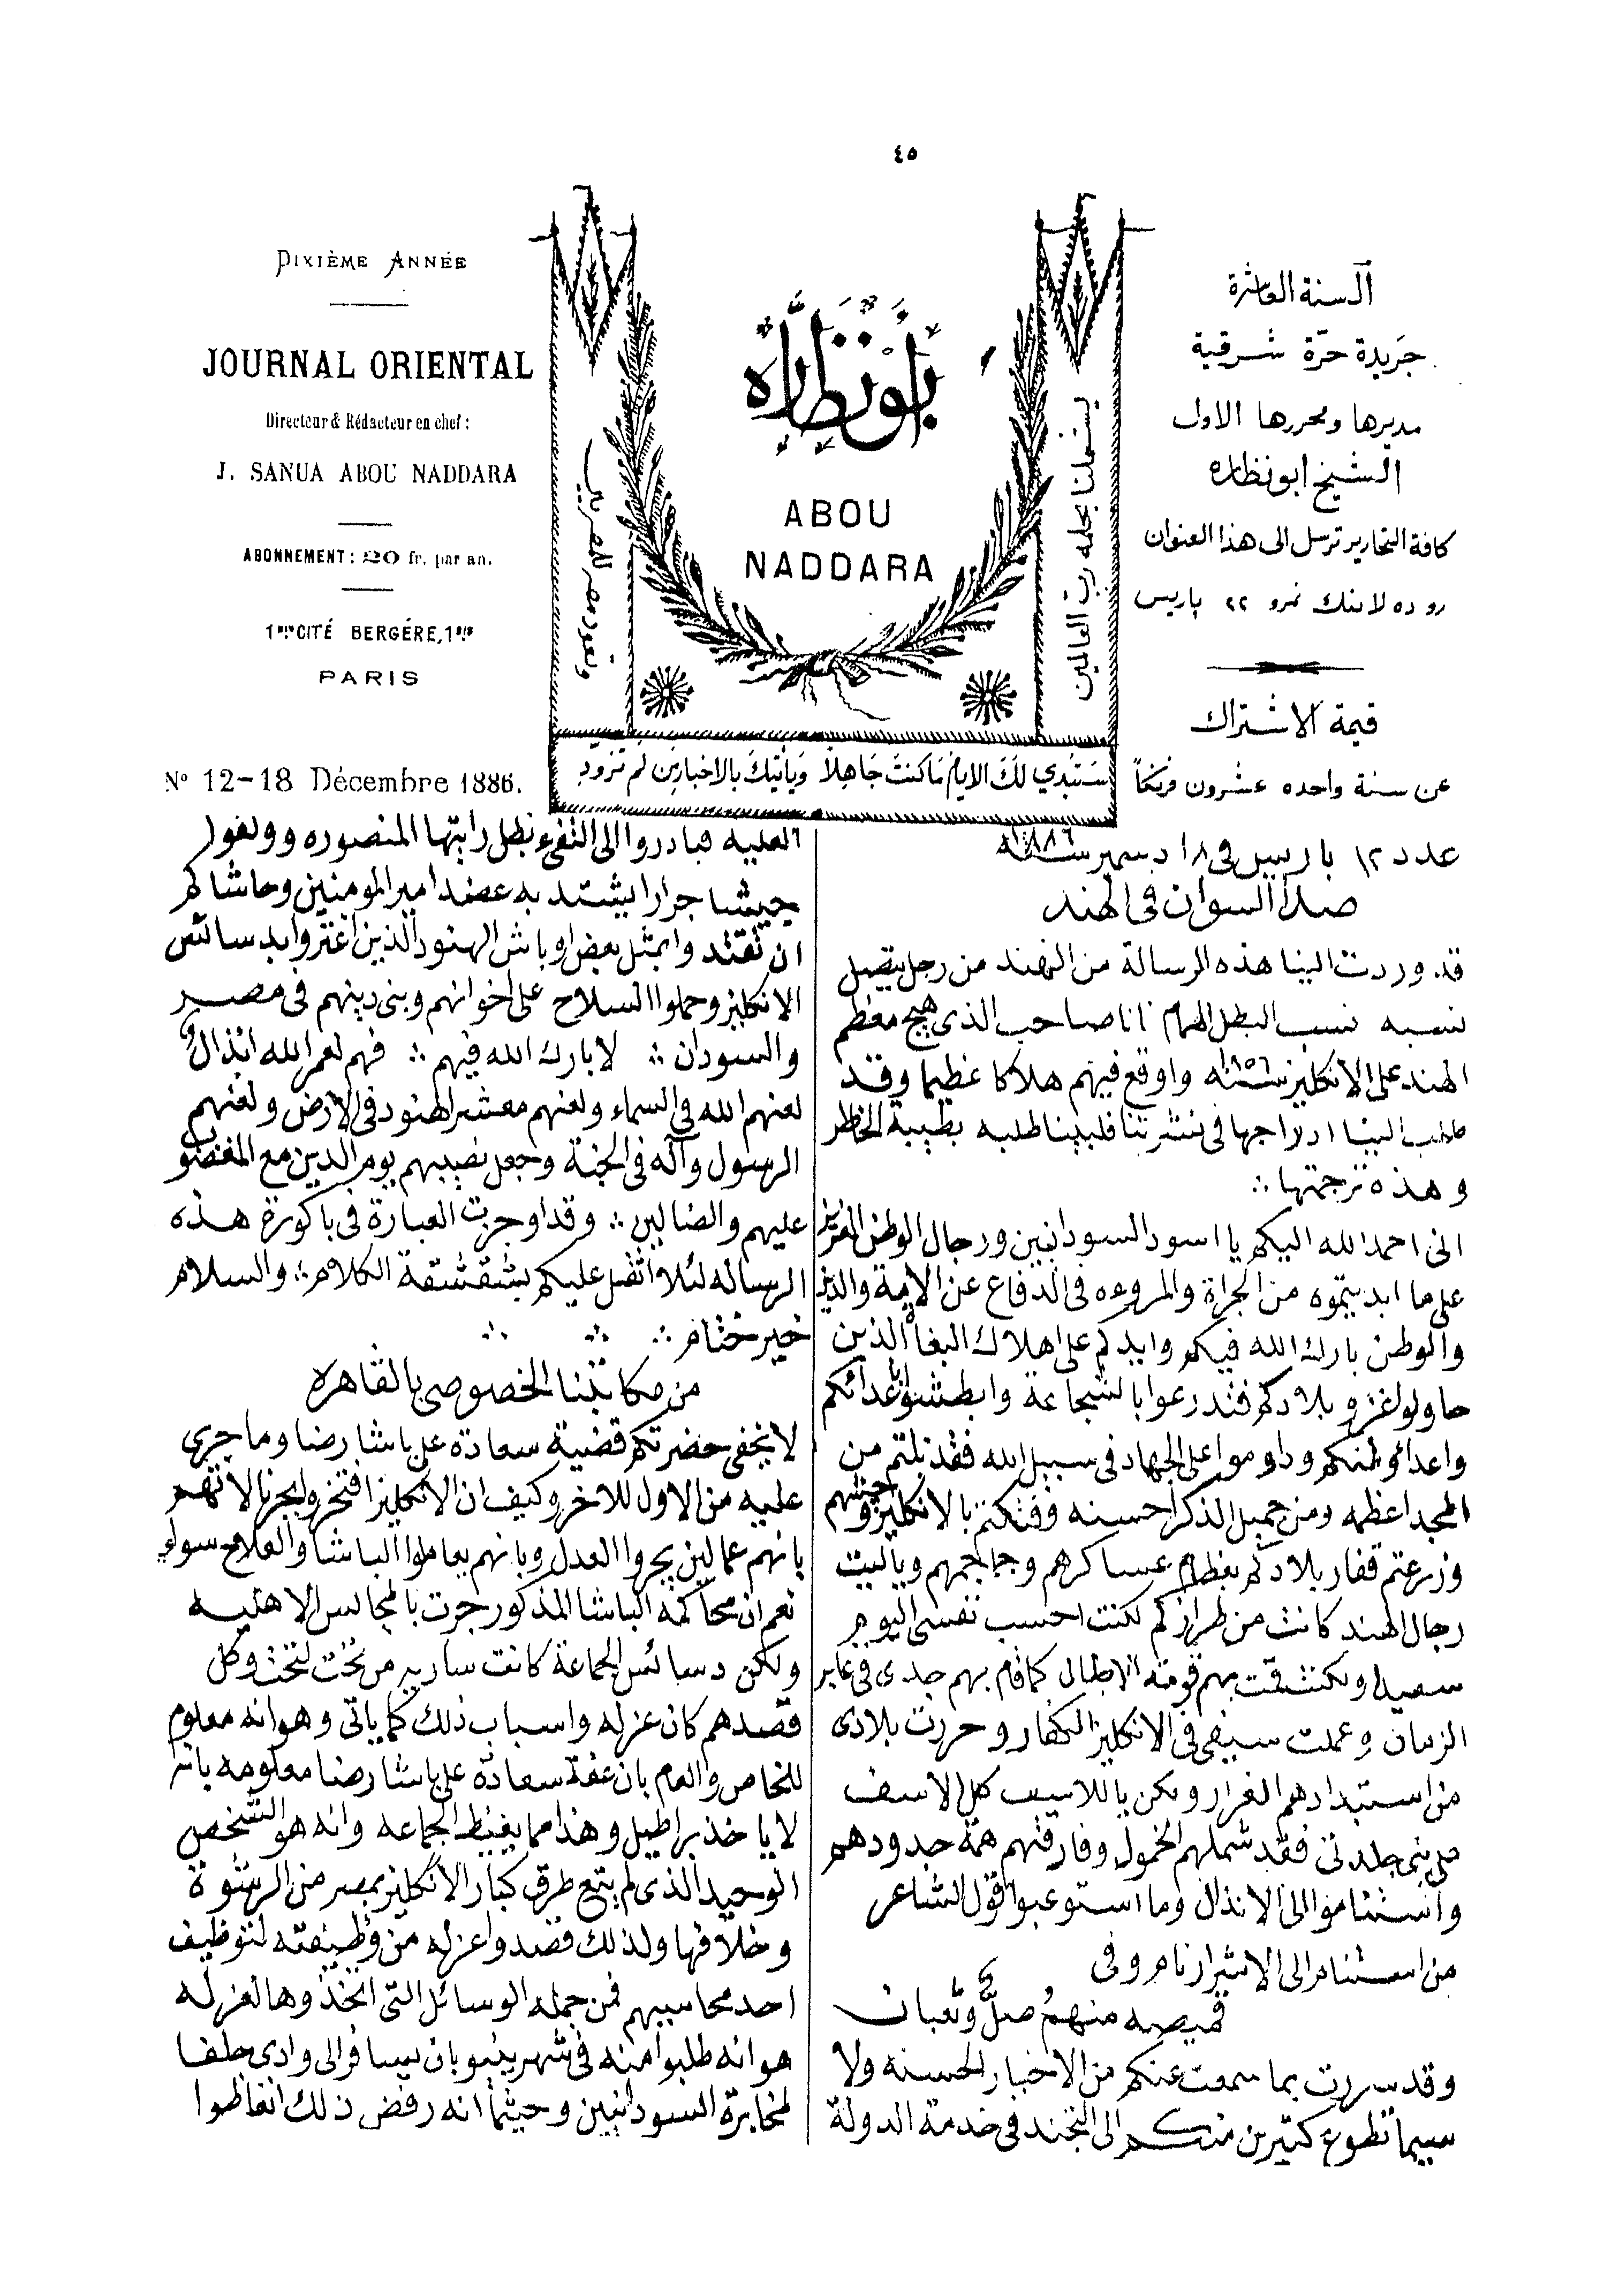 ٤٥
DIXIÈME ANNÉE
JOURNAL ORIENTAL
Directeur & Rédacteur en chef:
J. SANUA ABOU NADDARA
ABONNEMENT: 20 fr. par an.
CITÉ BERGÉRE,
PARIS
Nº 12-18 Décembre 1886.
ابو نظاره
ABOU
NADDARA
يشملنا بحلمه رب العالمين
وتعود مصر للمصريين
ستبدي لك الايام ما كنت جاهلا وياتيك بالاخبار من لم تزود
السنة العاشرة
جريدة حرّة شرقية
مديرها ومحررها الاول
الشيخ ابو نظاره
كافة التحارير ترسل الى هذا العنوان
رو ده لابنك نمرو ٢٢ پاريس
قيمة الاشتراك
عن سنة واحده عشرون فرنكاً
عدد ١٢ باريس فى ١٨ دسمبر سنة ١٨٨٦
صدا السوان فى الهند
قد وردت الينا هذه الرسالة من الهند من رجل يتصل
نسبه نسب البطل الهمام انا صاحب الذى هيج معظم
الهند على الانكليز سنة ١٨٥٦ واوقع فيهم هلاكا عظيما وقد
طلب الينا ادراجها فى نشرتنا فلبينا طلبه بطيبة الخاطر
وهذه ترجمتها ∴
انى احمد الله اليكم يا اسود السودانيين ورجال الوطن العزيز
على ما ابديتموه من الجراة والمروءه فى الدفاع عن الامة والدين
والوطن بارك الله فيكم وايدكم على اهلاك البغاة الذين
حاولوا غزو بلادكم فتدرعوا بالشجاعة وابطشوا باعدائكم
واعدا وطنكم وداوموا على الجهاد فى سبيل الله فقد نلتم من
المجد اعظمه ومن جميل الذكر احسنه وفتكتم بالانكليز
وزرعتم قفار بلادكم بعظام عساكرهم وجماجمهم ويا ليت
رجال الهند كانت من طرازكم لكنت احسب نفسى اليوم
سعيدا ولكنت قمت بهم قومة الابطال كما قام بهم جدى فى غابر
الزمان وعملت سيفى فى الانكليز الكفار وحررت بلادى
من استبدادهم الغرار ولكن يا للاسف كل الاسف
على بنى جلدتى فقد شملهم الخمول وفارقتهم همة جدودهم
واستناموا الى الانذال وما استوعبوا قول الشاعر
من استنام الى الاشرار نام وفى
قميصه منهمُ صلٌّ وثعبان
وقد سررت بما سمعت عنكم من الاخبار الحسنه ولا
سيما تطوع كثيرين منكم الى التجند فى خدمة الدولة
العليه فبادروا الى التفىء بظل رايتها المنصوره وولفوا
جيشا جرارا يشتد به عضد امير المومنين وحاشاكم
ان تقتدوا بمثل بعض اوباش الهنود الذين اغتروا بدسائس
الانكليز وحملوا السلاح على اخوانهم وبنى دينهم فى مصر
والسودان ∴ لا بارك الله فيهم ∴ فهم لعمر الله انذال
لعنهم الله فى السماء ولعنهم معشر الهنود فى الارض ولعنهم
الرسول وآله فى الجنة وجعل نصيبهم يوم الدين مع المغضوب
عليهم والضالين ∴ وقد اوجزت العبارة فى باكورة هذه
الرساله لئلا اثقل عليكم بشقشقة الكلام ∴ والسلام
خير ختام ∴
من مكاتبنا الخصوصى بالقاهره
لا يخفى حضرتكم قضية سعادة على باشا رضا وما جرى
عليه من الاول للاخر وكيف ان الانكليز افتخروا بجرنالاتهم
بانهم عمالين يجروا العدل وبانهم يعاملوا الباشا والفلاح سواء
نعم ان محاكمة الباشا المذكور جرت بالمجالس الاهليه
ولكن دسائس الجماعة كانت ساريه من تحت لتحت وكل
قصدهم كان عزله واسباب ذلك كما ياتى وهو انه معلوم
للخاص والعام بان عفة سعادة على باشا رضا معلومه بانه
لا ياخذ براطيل وهذا مما يغيظ الجماعه وانه هو الشخص
الوحيد الذى لم يتبع طرق كبار الانكليز بمصر من الرشوة
وخلافها ولذلك قصدوا عزله من وظيفته لتوظيف
احد محاسيبهم فمن جمله الوسائل التى اتخذوها لعزله
هو انه طلبوا منه فى شهر ينيو بان يسافر الى وادى حلفا
لمخابرة السودانيين وحيثما انه رفض ذلك انغاظوا